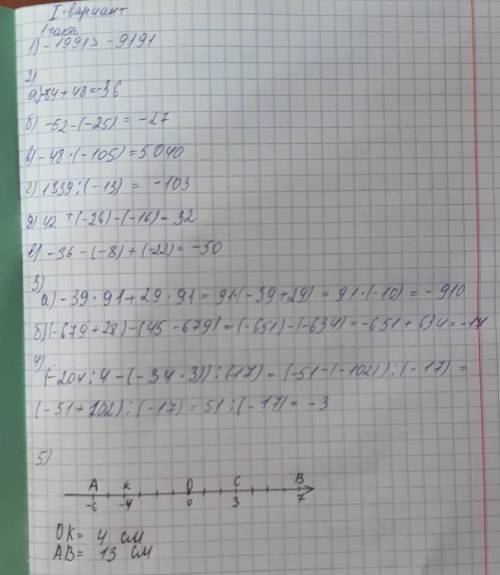 I-вариант
1часть
1) -1991 > -9191
2)
а) -84+48=-36
б) -52-(-25) = -27
в) -48·(-105)=5040
г) 1339:(-13) = -103
д) 42 +(-26)-(-16)= 32
е) -36-(-8)+(-22)= -50
3)
а) -39·91+29·91= 91·(-39+29) = 91·(-10) = -910
б) (-679+28)-(45-679)=(-651)-(-634)= -651+634=-17
4)
(-204:4-(-34·3)):(-17)= (-51-(-102)):(-17) =
(-51+102):(-17)= 51:(-17)= -3
5)
A K O C B
-6 -4 0 3 7
OK= 4 см
AB= 13 см